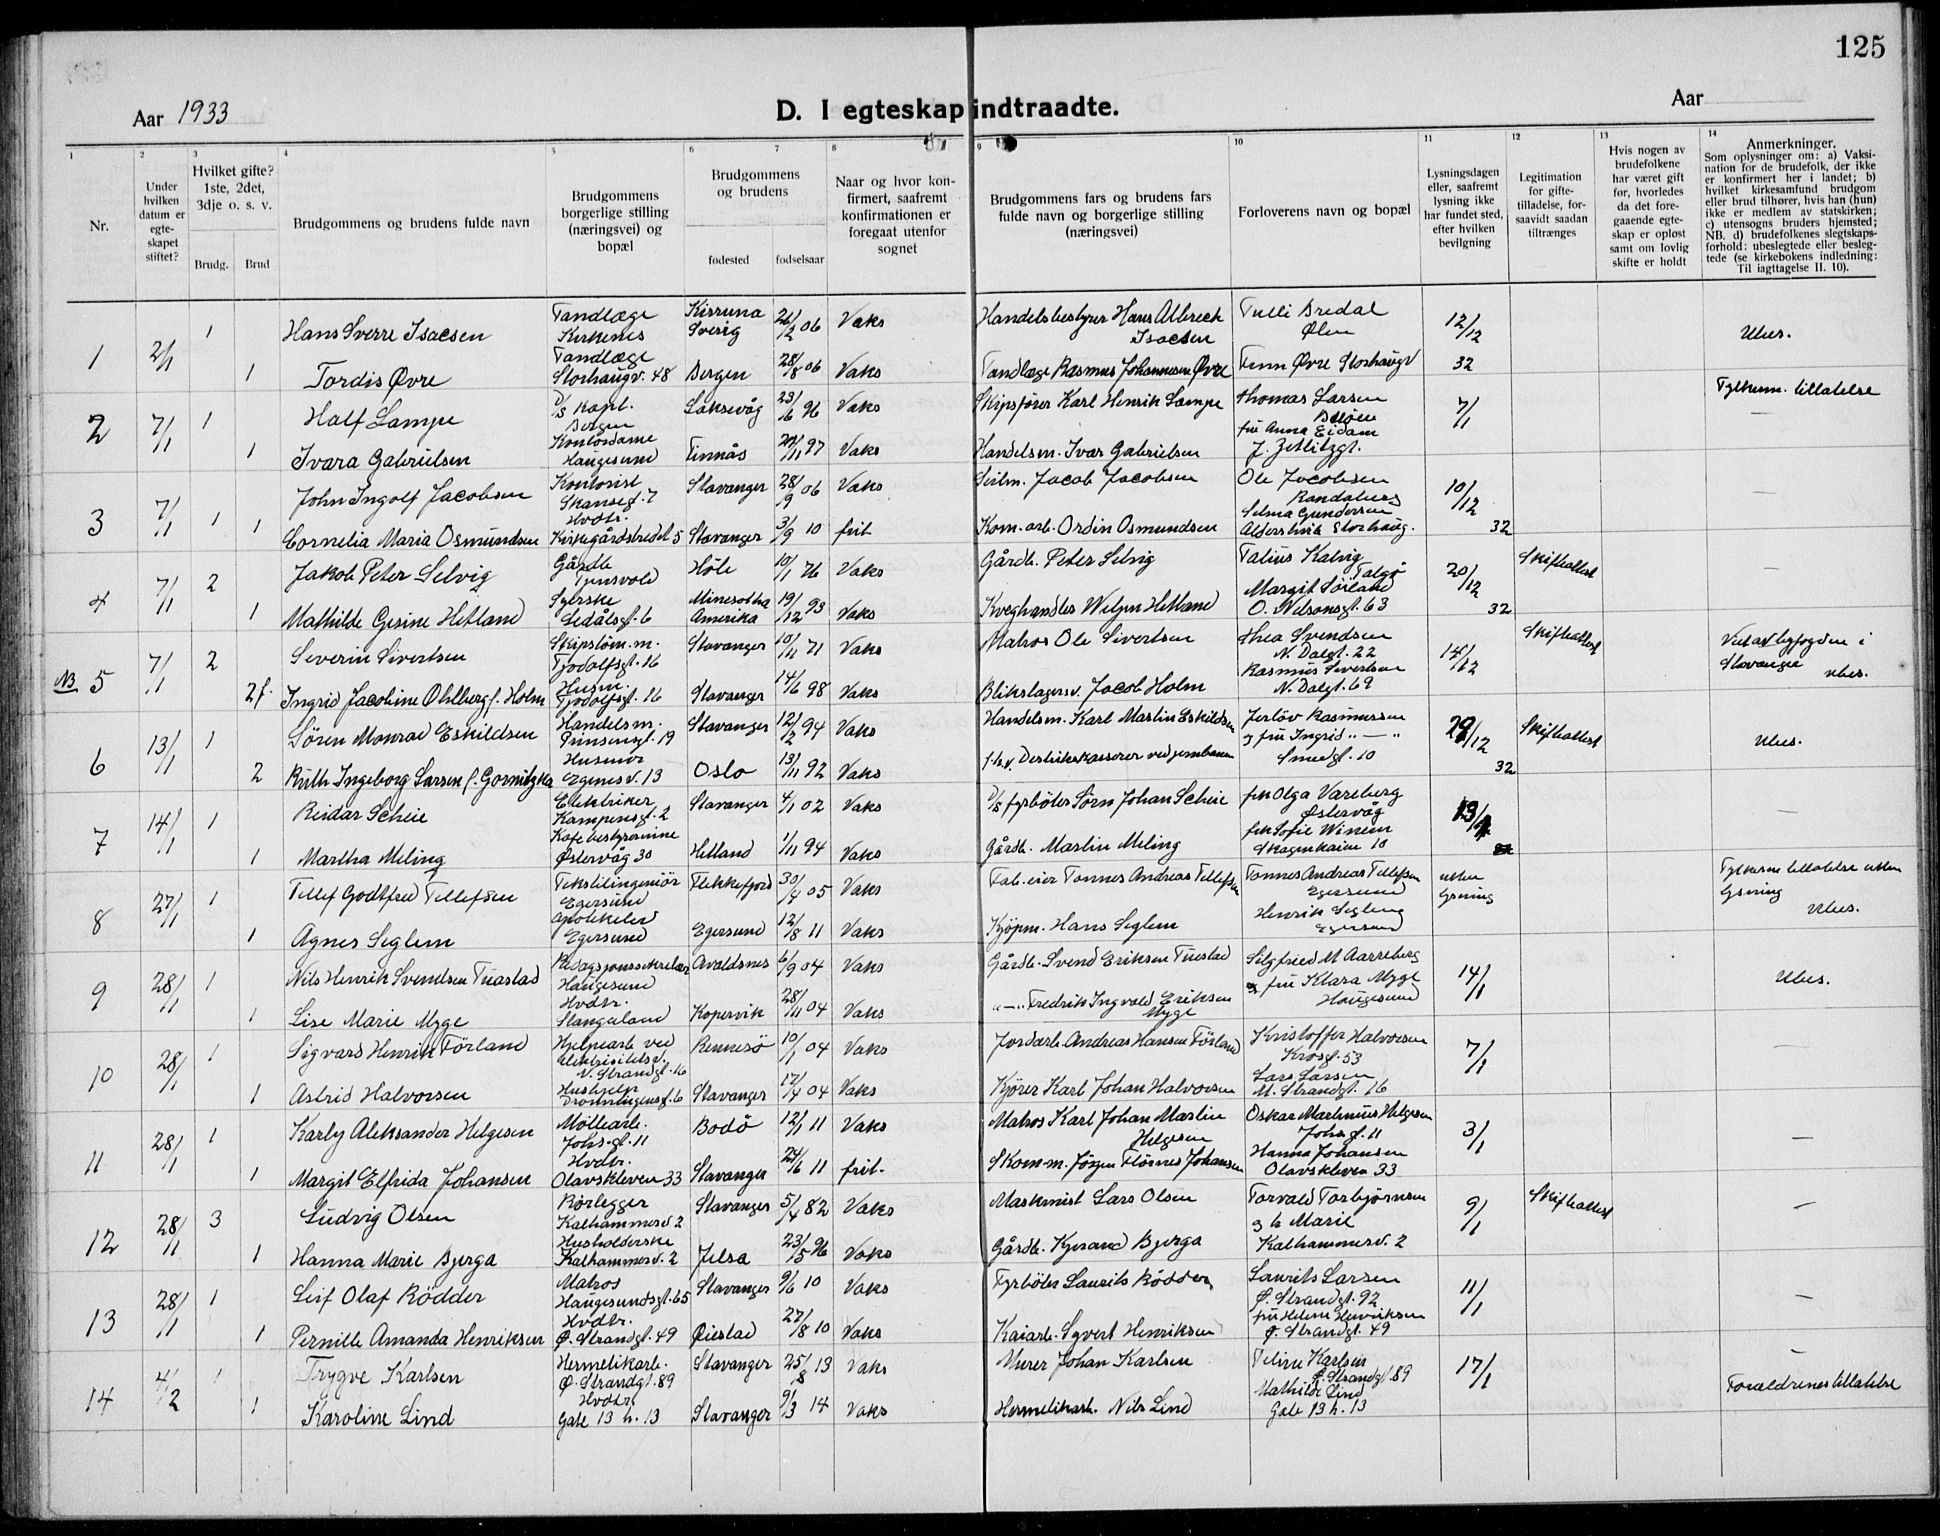 125
Aar 1933
D. I egteskap indtraadte.
Aar
1 2 3 4 5 6 7 8 9 10 11 12 13 14
Nr.
Under hvilken datum er egteskapet stiftet?
Hvilket gifte? 1ste, 2det, 3dje o. s. v.
Brudg. Brud
Brudgommens og brudens fulde navn
Brudgommens borgerlige stilling (næringsvei) og bopæl
Brudgommens og brudens
fødested fødselsaar
Naar og hvor konfirmert, saafremt konfirmationen er foregaat utenfor sognet
Brudgommens fars og brudens fars fulde navn og borgerlige stilling (næringsvei)
Forloverens navn og bopæl
Lysningsdagen eller, saafremt lysning ikke har fundet sted, efter hvilken bevilgning
Legitimation for giftetilladelse, forsaavidt saadan tiltrænges
Hvis nogen av brudefolkene har været gift før, hvorledes da det foregaaende egteskap er opløst samt om lovlig skifte er holdt
Anmerkninger.
Som oplysninger om: a) Vaksination for de brudefolk, der ikke er konfirmert her i landet; b) hvilket kirkesamfund brudgom eller brud tilhører, hvis han (hun) ikke er medlem av statskirken; c) utensogns bruders hjemsted; NB. d) brudefolkenes slegtskapsforhold: ubeslegtede eller beslegtede (se kirkebokens indledning: Til iagttagelse II. 10).
1 2/1 1 Hans Sverre Isacsen Tandlæge Kirkenes Kirruna Sverig 26/2 06 Vaks Handelsbestyrer Hans Albreck Isacsen Tulli Bredal Ølen 12/12 32 Ubes.
1 Tordis Øvre Tandlæge Storhaugv. 48 Bergen 28/8 06 Vaks Tandlæge Rasmus Johannesen Øvre Finn Øvre Storhaugv
2 7/1 1 Half Lampe D/S kapt. Bergen Laksevåg 23/6 96 Vaks Skipsfører Karl Henrik Lampe Thomas Larsen 7/1 Fylkesm. tillatelse —
1 Ivara Gabrielsen Kontordame Haugesund Finnås Vaks Handelsm. Ivar Gabrielsen fru Anna Eidam J. Zetlitzgt.
3 7/1 1 John Ingolf Jacobsen Kontorist Skanseg. 7 Stavanger 28/9 06 Vaks Seilm. Jacob Jacobsen Ole Jacobsen Randaberg 10/12 32 —
1 Cornelia Maria Osmundsen Hvdtr. Kirkegårdsbredet 5 Stavanger 3/9 10 frit Kom. arb. Ordin Osmundsen Selma Gundersen Aldershvile Storhaug.
4 7/1 2 Jakob Peter Selvig Gårdb. Høle 10/1 76 Vaks Gårdb. Peter Selvig Talius Kalvig Talgø 20/12 32 Skifteattest —
1 Mathilde Gesine Hetland Syerske Ledålsg. 6 Minesotha Amerika 19/12 93 Vaks Kveghandler Hetland Margit Sørland O. Nilsonsgt. 63
NB 5 7/1 2 Severin Sivertsen Skipstøm. m. Tjodolfsgt. 16 Stavanger 10/11 71 Vaks Matros Ole Sivertsen Thea Svendsen N. Dalgt. 22 14/12 Skifteattest Viet av byfogden i Stavanger Ubes.
2 f. Ingrid Jacobine Ohlberg f. Holm Husm. Tjodolfsgt. 16 Stavanger 14/6 98 Vaks Blikslagersv. Jacob Holm Rasmus Sivertsen N. Dalgt. 69
6 13/1 1 Søren Monrad Eskildsen Handelsm. Prinsensgt. 19 Stavanger 12/2 94 Vaks Handelsm. Karl Martin Eskildsen Jerløv Rasmussen 29/12 32 Skifteattest Ubes.
2 Ruth Ingeborg Larsen f. Gornitzka Husmor Egenesv. 13 Oslo 13/11 92 Vaks f.h.v. Distriktskasserer ved jernbanen og fru Ingrid „—„ Smedgt. 10
7 14/1 1 Reidar Scheie Elektriker Kampensgt. 2 Stavanger 4/1 02 Vaks D/S fyrbøter Sørn Johan Scheie frk Olga Vareberg Østervåg 13/1 —
1 Martha Meling Kafebestyrerinne Østervåg 30 Hetland 1/11 94 Vaks Gårdb. Martin Meling frk Sofie Winem Skagenkaien 10
8 27/1 1 Tellef Godtfred Tellefsen Tekstilingeniør Egersund Flekkefjord 30/4 05 Vaks Fab. eier Tønnes Andreas Tellefsen Tønnes Andreas Tellefsen Egersund uten lysning Fylkesm tillatelse uten lysning Ubes.
1 Agnes Seglem Apotekelev Egersund Egersund 12/8 11 Vaks Kjøpm. Hans Seglem Henrik Seglem Egersund
9 28/1 1 Nils Henrik Svendsen Tuastad Redagsjonssekretær Haugesund Avaldsnes 6/9 04 Vaks Gårdb. Svend Eriksen Tuestad Sigfried M Aarreberg 14/1 Ubes.
1 Lise Marie Myge Hvdtr. Stangeland Kopervik 28/11 04 Vaks „—„ Fredrik Ingvald Eriksen Myge fru Klara Myge Haugesund
10 28/1 1 Sigvard Henrik Førland Hjelpearb ved elektrisitetsv. N. Strandgt. 16 Rennesø 10/1 04 Vaks Jordarb. Andreas Hansen Førland Kristoffer Halvorsen Krosgt. 53 7/1 —
1 Astrid Halvorsen Hushjelp Dronningensgt. 6 Stavanger 17/4 04 Vaks Kjører Karl Johan Halvorsen Lars Larsen N. Strandgt. 16
11 28/1 1 Karly Aleksander Helgesen Møllearb. Johs. gt. 11 Bodø 12/1 11 Vaks Matros Karl Johan Martin Helgesen Oskar Martinius Helgesen Johs gt. 11 3/1 —
1 Margit Elfrida Johansen Hvdtr. Olavskleven 33 Stavanger 24/6 11 frit. Skom. m. Jørgen Flørnes Johansen Hanna Johansen Olavskleven 33
12 28/1 3 Ludvig Olsen Rørlegger Kalhammersv. 2 Stavanger 5/4 82 Vaks Maskinist Lars Olsen Torvald Torbjørnsen 9/1 Skifteattest —
1 Hanna Marie Bjerga Husholderske Kalhammersv. 2 Jelsa 23/5 96 Vaks Gårdb. Kjerand Bjerga og h Marie Kalhammersv. 2
13 28/1 1 Leif Olaf Rödder Matros Haugesundsgt. 65 Stavanger 9/6 10 Vaks Fyrbøter Laurits Rödder Laurits Larsen Ø. Strandgt. 92 11/1 —
1 Pernille Amanda Henriksen Hvdtr. Ø. Strandgt. 49 Øiestad 27/8 10 Vaks Kaiarb. Syvert Henriksen fru Helene Henriksen Ø. Strandgt. 49
14 4/2 1 Trygve Karlsen Hermetikarb. Ø. Strandgt. 89 Stavanger 25/8 13 Vaks Murer Johan Karlsen Karlsen Ø. Strandgt. 89 17/1 — Foreldrenes tillatelse
1 Karoline Lind Hvdtr. Gate 13 h. 13 Stavanger 9/3 14 Vaks Hermetikarb. Nils Lind Mathilde Lind Gate 13 h. 13